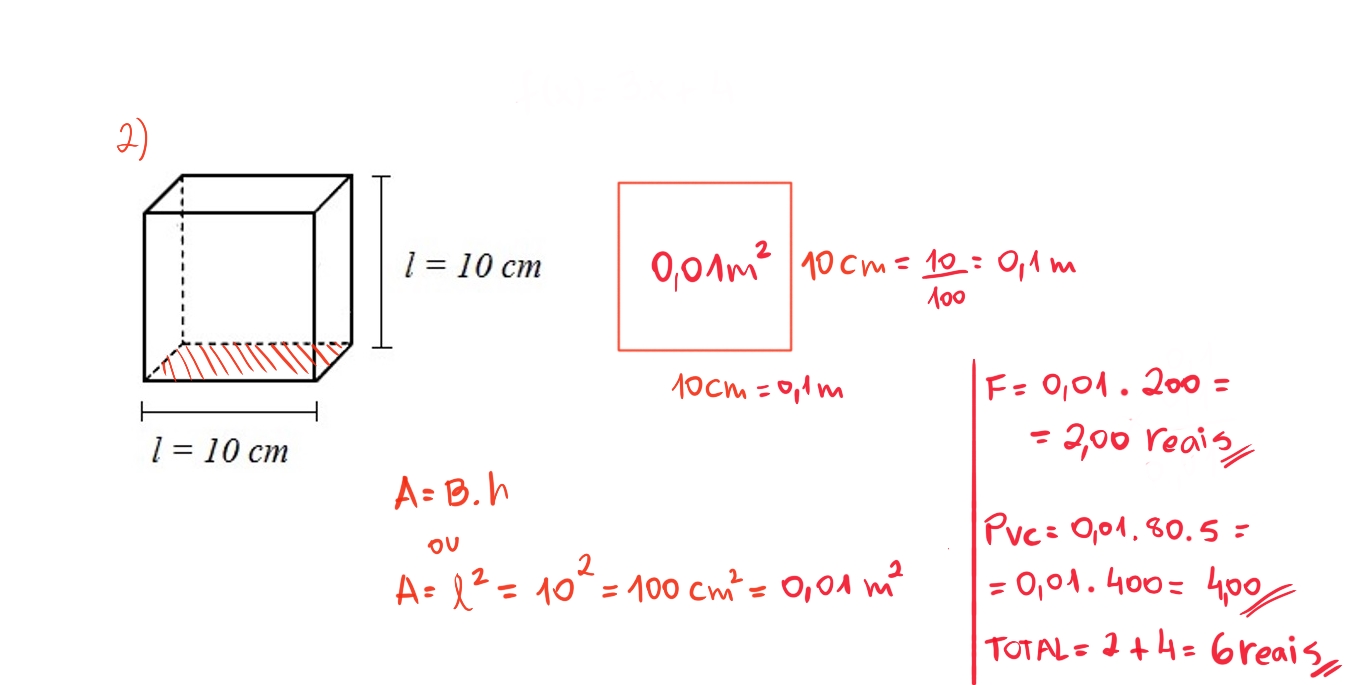 2)
l = 10 cm
l = 10 cm
0,01m²
10cm = 10/100 = 0,1m
10cm = 0,1m
A = B.h
ou
A = l² = 10² = 100 cm² = 0,01 m²
F = 0,01 . 200 =
= 2,00 reais
Pvc = 0,01 . 80 . 5 =
= 0,01 . 400 = 4,00
TOTAL = 2 + 4 = 6 reais